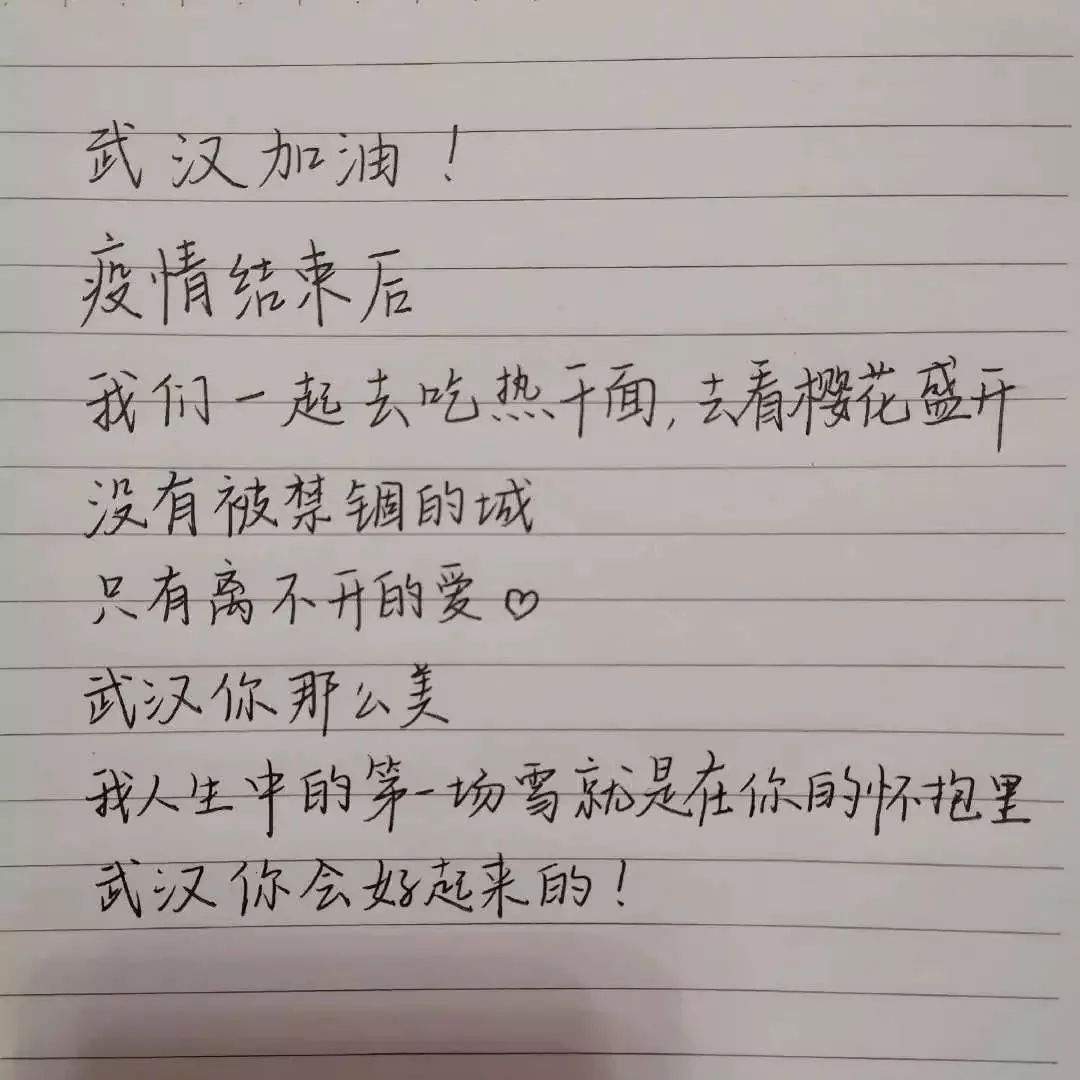 武汉加油！
疫情结束后
我们一起去吃热干面,去看樱花盛开
没有被禁锢的城
只有离不开的爱♡
武汉你那么美
我人生中的第一场雪就是在你的怀抱里
武汉你会好起来的！